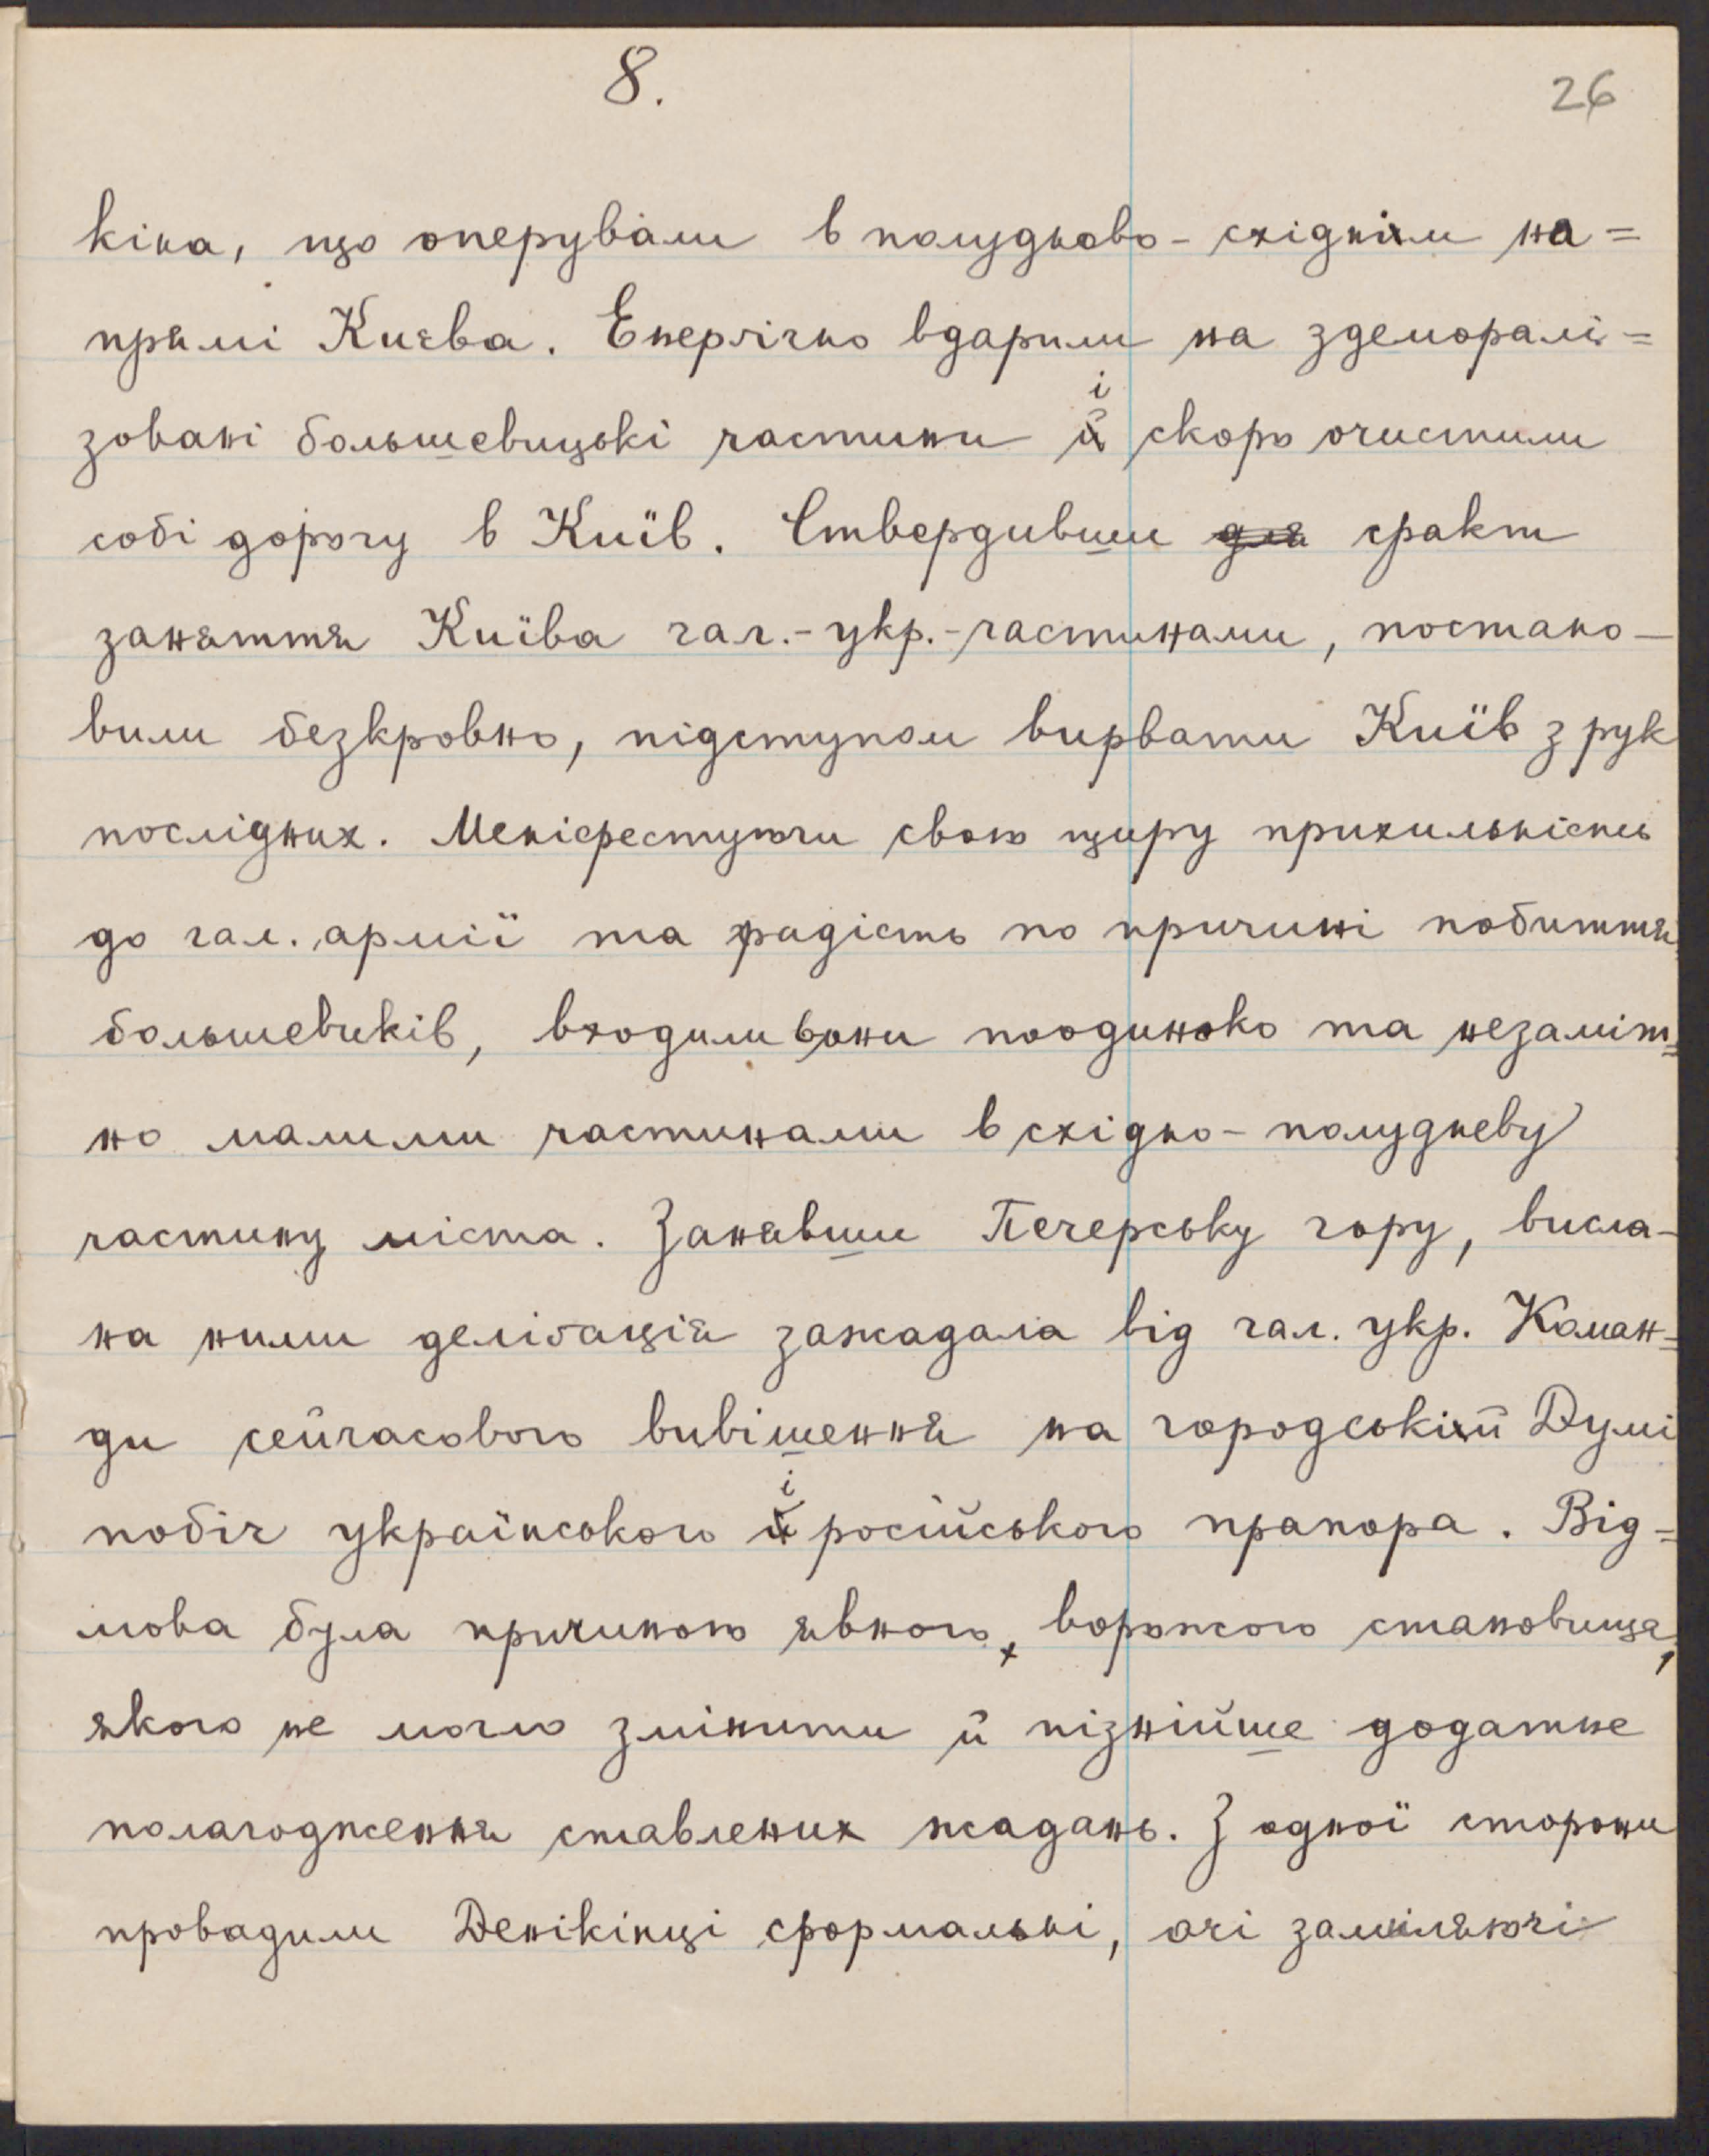 8.
26
кіна, що оперували в полудново-східнім на=
прямі Києва. Енерґічно вдарили на здеморалі=
зовані большевицькі частини і скоро очистили
собі дорогу в Київ. Ствердивши для факт
заняття Київа гал.-укр.-частинами, постано-
вили безкровно, підступом вирвати Київ з рук
послідних. Меніфестуючи свою щиру прихильність
до гал. армії та радість по причині побиття
большевиків, входили вони поодиноко та незаміт=
но малими частинами в східно-полудневу
частину міста. Занявши Печерську гору, висла-
на ними делєґація зажадала від гал. укр. Коман=
ди сейчасового вивішення на городській Думі
побіч українського і російського прапора. Від=
мова була причиною явного, ворожого становища,
якого не могло змінити й пізнійше додатне
полагодження ставлених жадань. З одної сторони
провадили Денікінці формальні, очі замилюючі